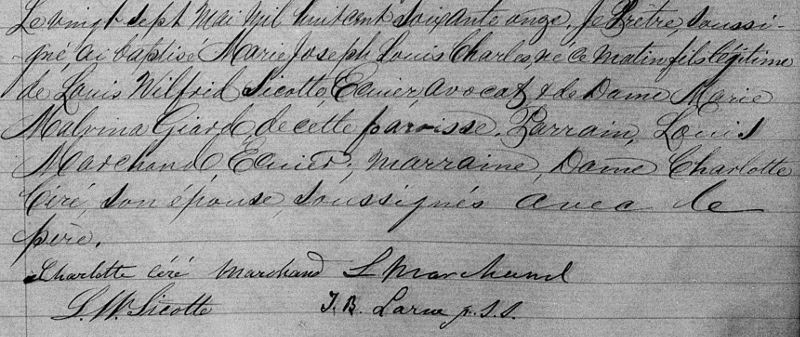 Le vingt sept Mai mil huit cent soixante onze, Je Prêtre, soussi-
gné, ai baptisé Marie Joseph Louis Charles, né ce matin, fils légitime
de Louis Wilfrid Sicotte, Ecuier, Avocat & de Dame Marie
Malvina Giard, de cette paroisse. Parrain, Louis
Marchand, Ecuier; marraine, Dame Charlotte
Céré, son épouse, soussignés avec le
père.
Charlotte Céré Marchand L Marchand
L. W. Sicotte J. B. Larue p. S. S.